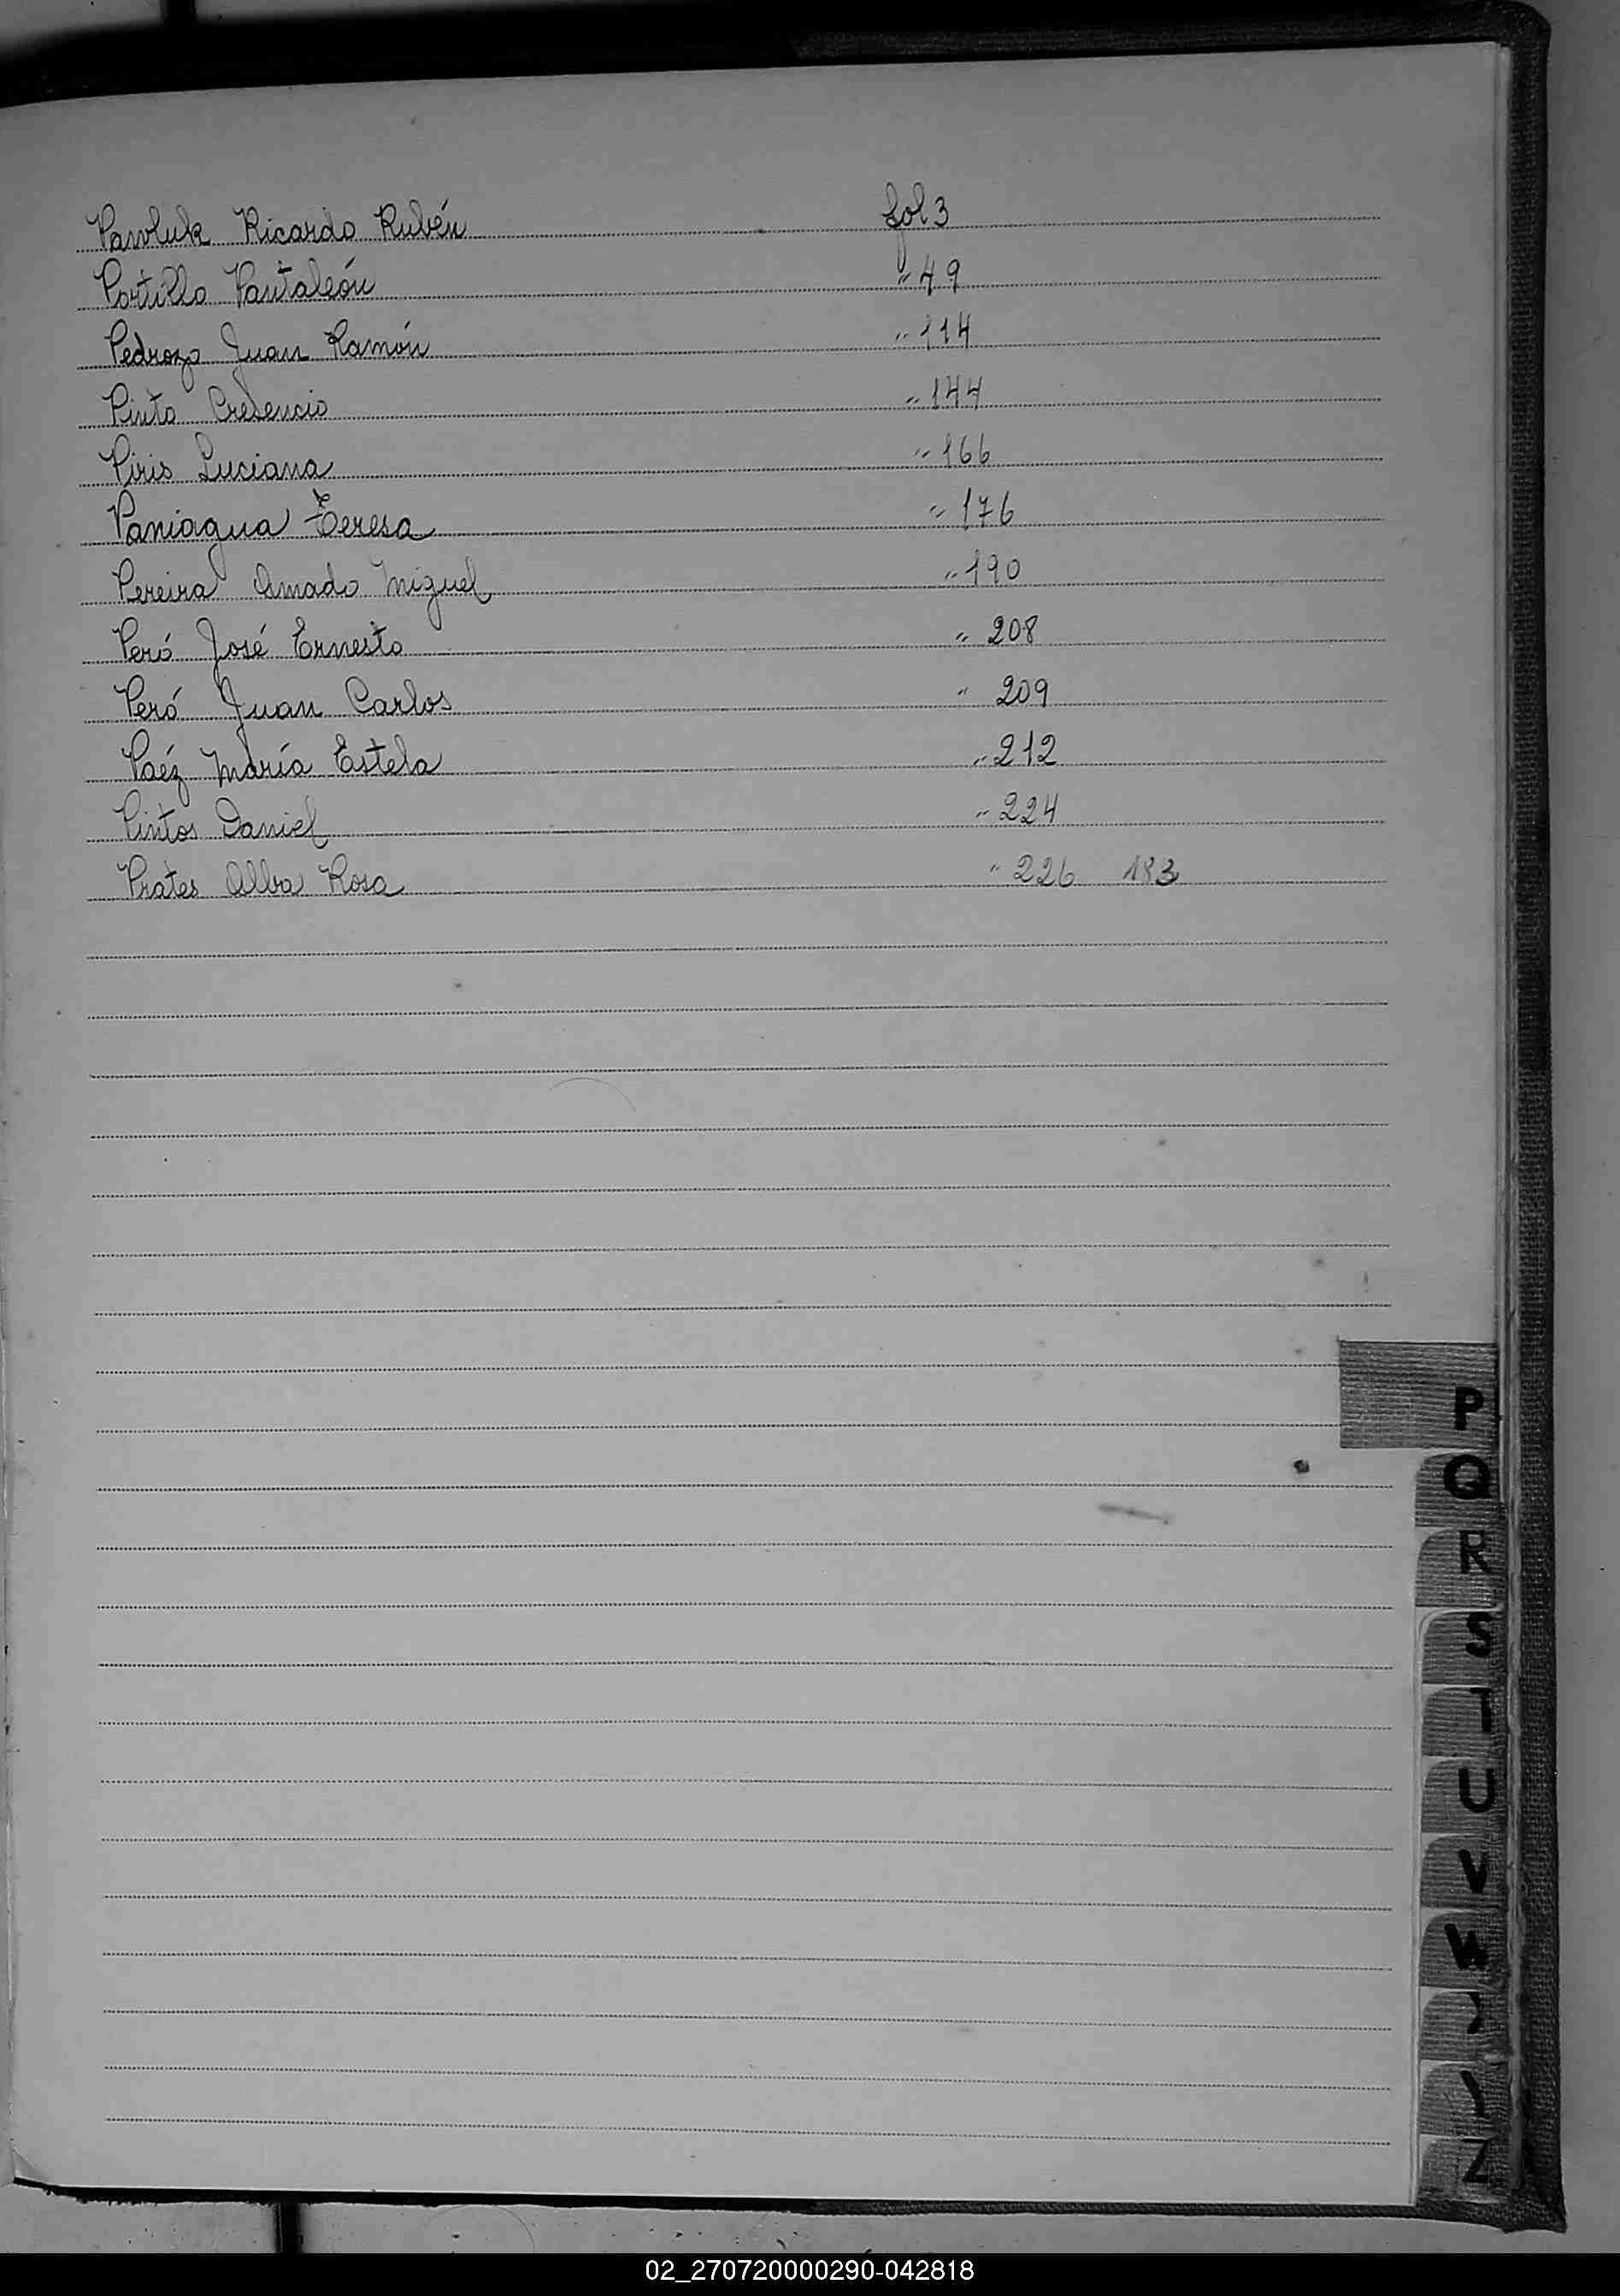 Pawluk Ricardo Rubén fol 3
Portillo Pantaleón " 49
Pedrozo Juan Ramón " 114
Pinto Cresencio " 144
Piris Luciana " 166
Paniagua Teresa " 176
Pereira Amado Miguel " 190
Peró José Ernesto " 208
Peró Juan Carlos " 209
Paéz María Estela " 212
Pintos Daniel " 224
Prates Alba Rosa " 226 183
P
Q
R
S
T
U
V
W
Z
02_270720000290-042818